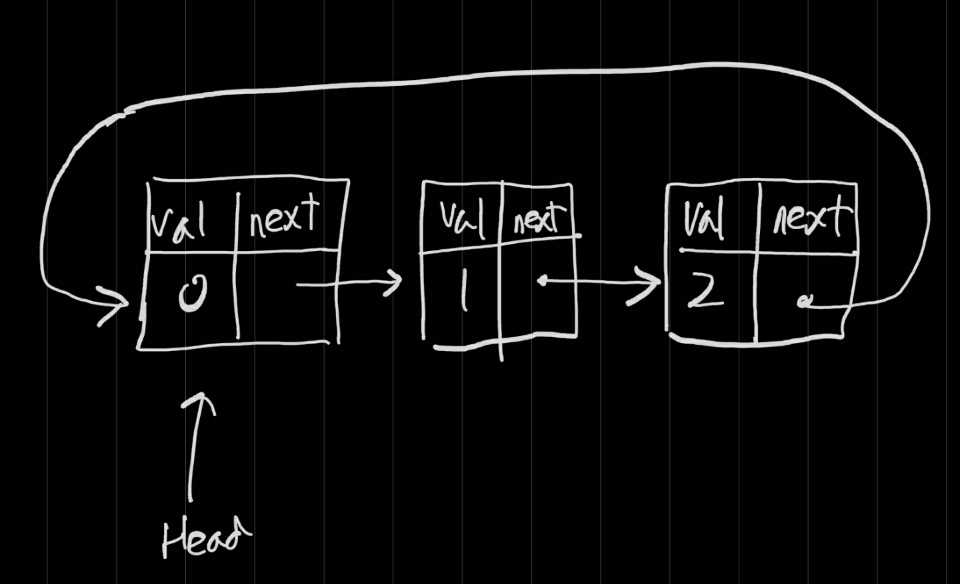 val next val next val next
0 1 2
Head